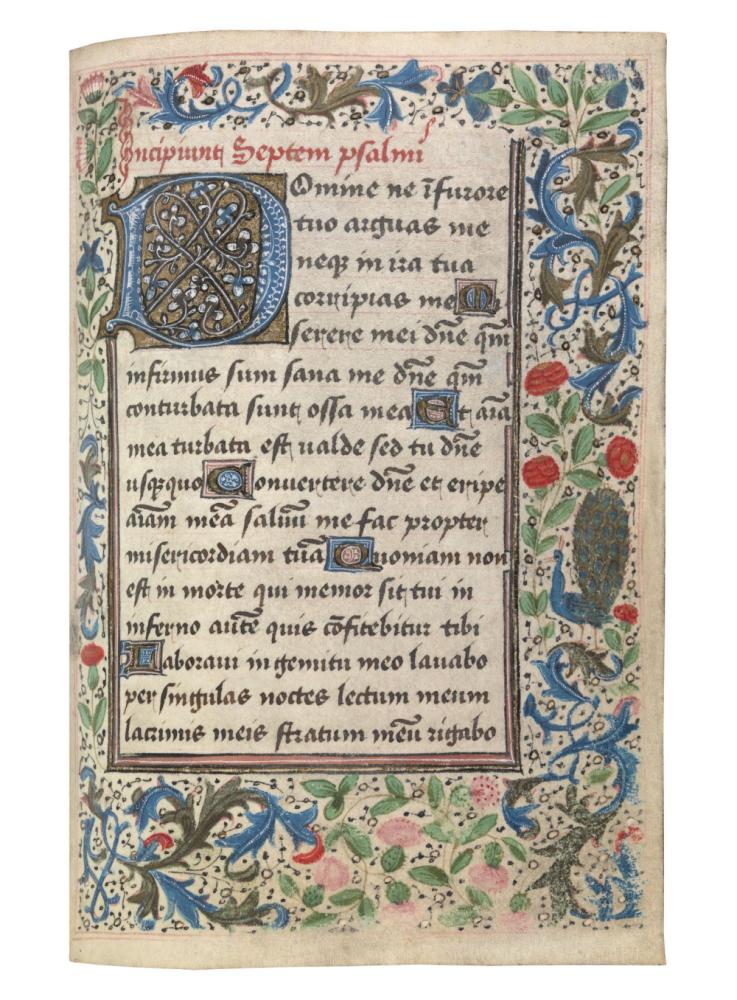 Incipiunt Septem psalmi
Domine ne īfurore
tuo arguas me
neqꝫ in ira tua
corripias me M
serere mei dn̄e qm̄
infirmus sum sana me dn̄e qm̄
conturbata sunt ossa mea Et aīa
mea turbata est ualde sed tu dn̄e
usqꝫquo Conuertere dn̄e et eripe
aīam meā saluū me fac propter
misericordiam tuā Quoniam non
est in morte qui memor sit tui in
inferno autē quis cōfitebitur tibi
Laboraui in gemitu meo lauabo
per singulas noctes lectum meum
lacrimis meis stratum meū rigabo